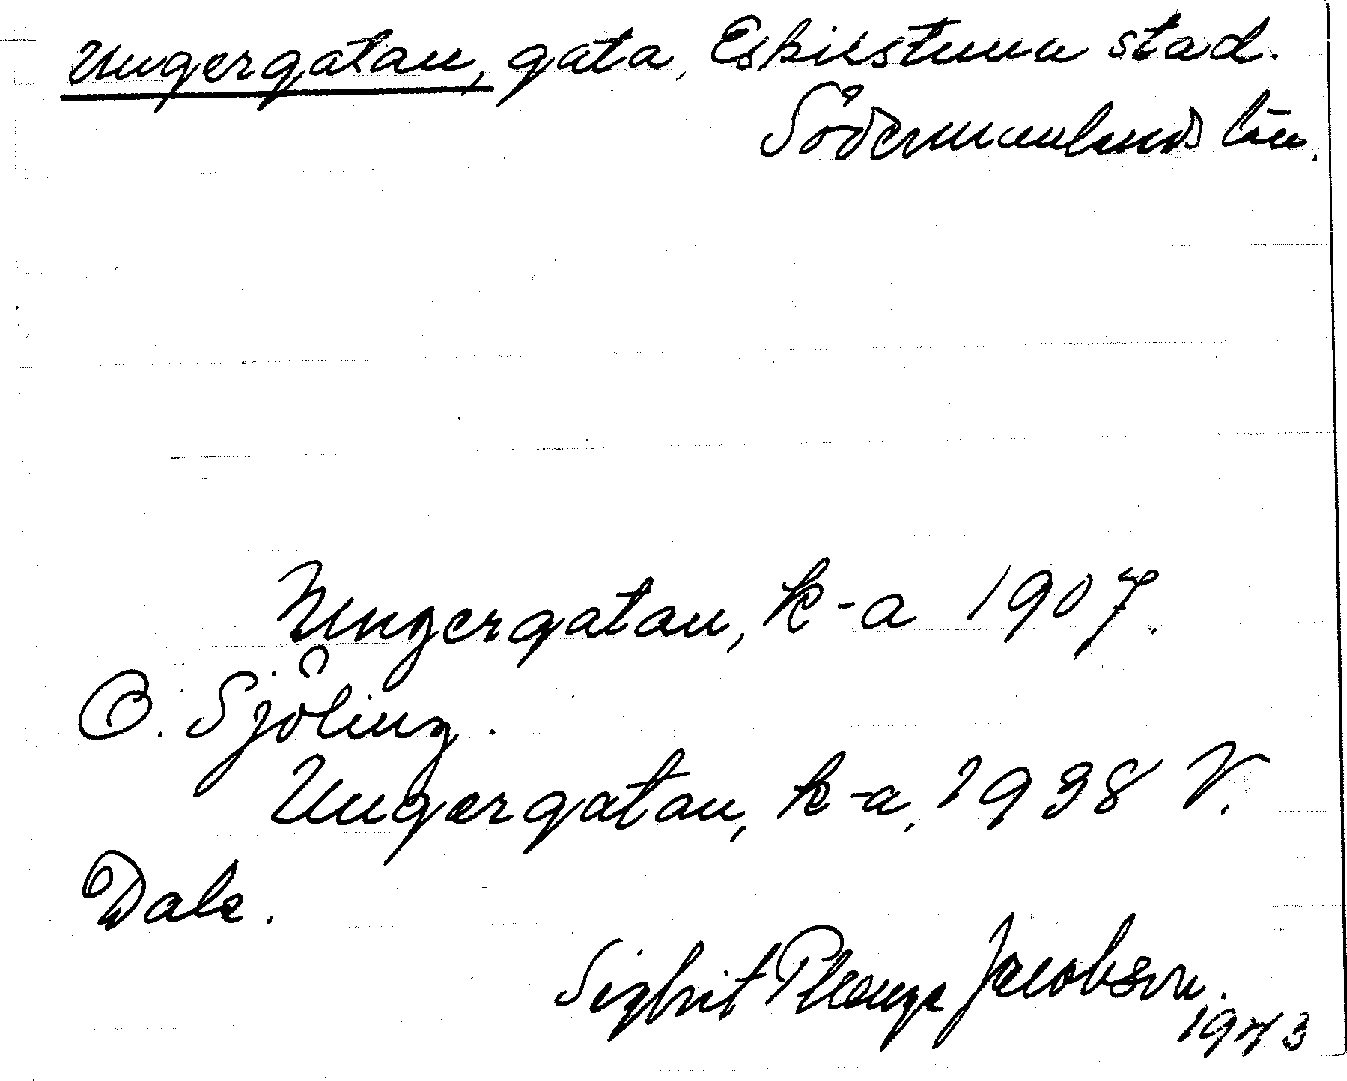 Ungergatan, gata, Eskilstuna stad.
Södermanlands län.
Ungergatan, k-a 1907.
O. Sjöling.
Ungergatan, k-a, 1938 V.
Dale.
Sigbrit Plænge Jacobson.
1973